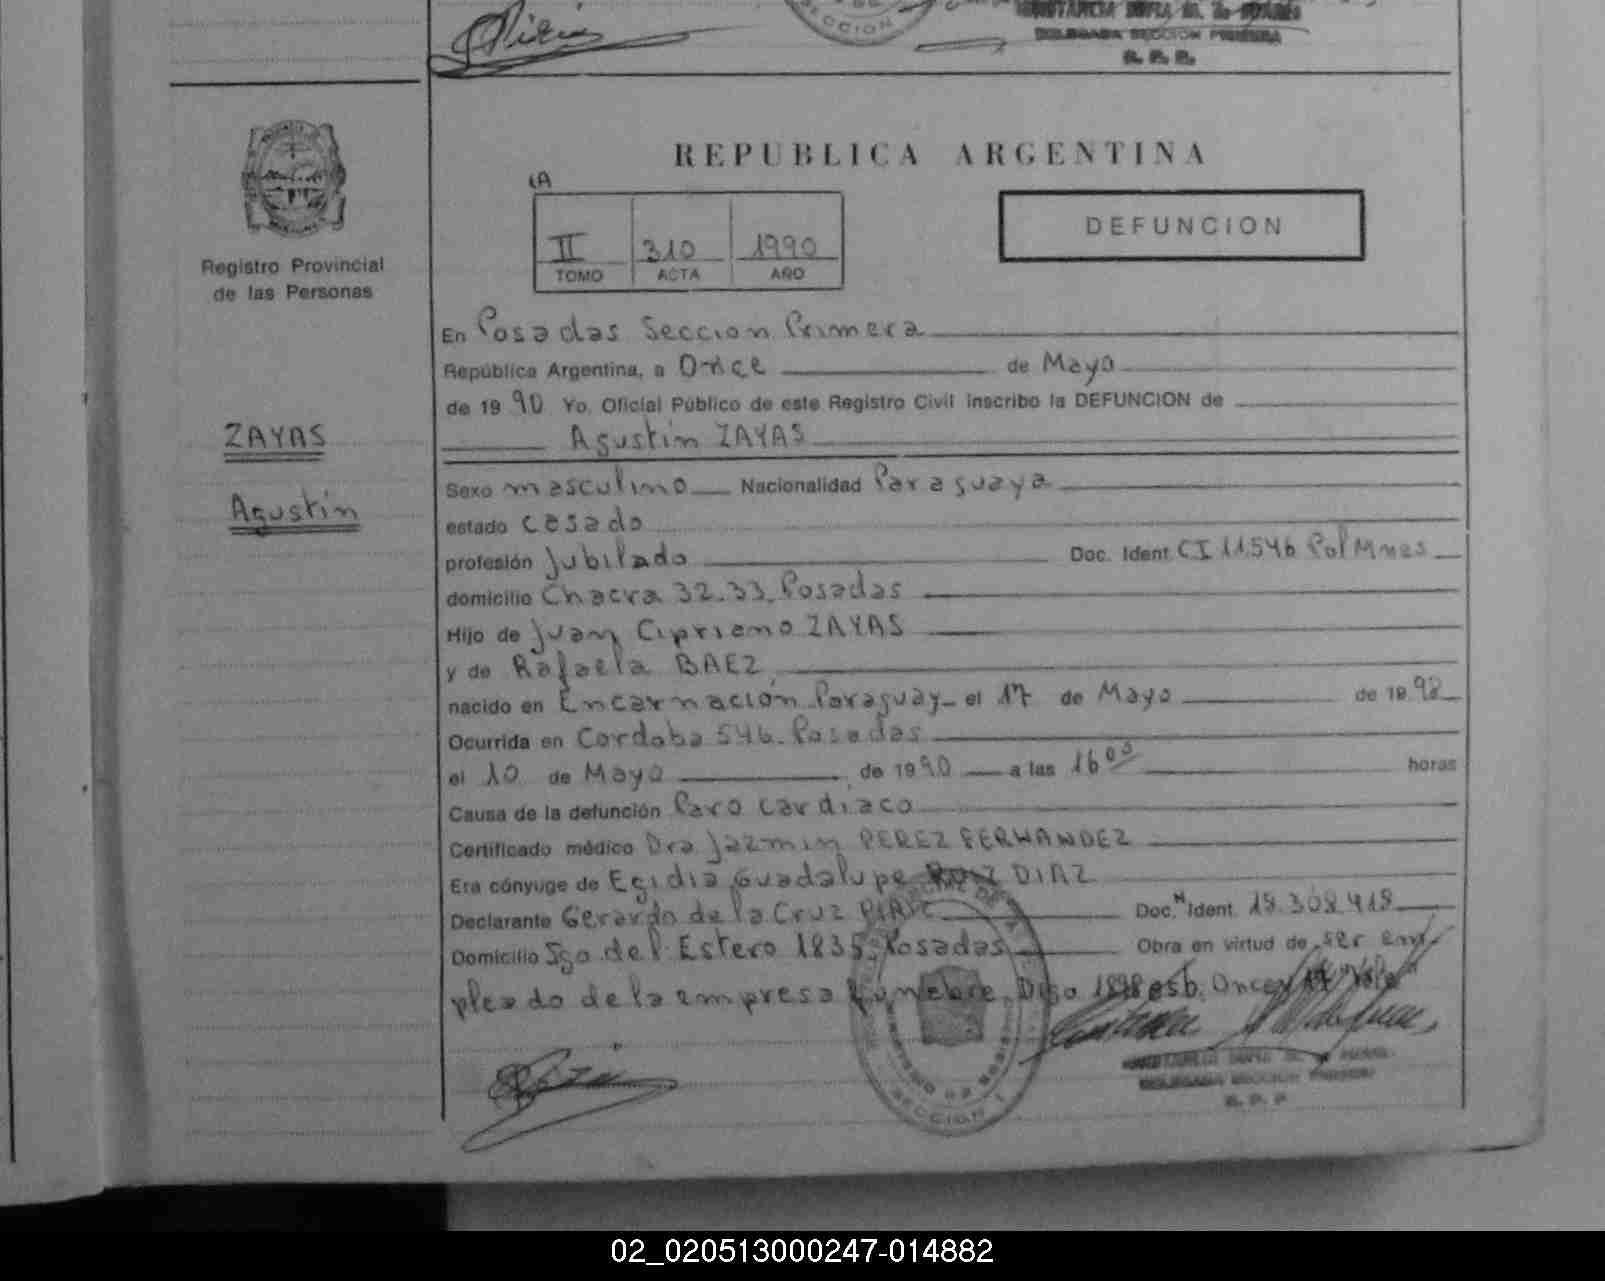 SECCION
DELEGADA SECCION PRIMERA
R. P. P.
REPUBLICA ARGENTINA
DEFUNCION
II 310 1990
TOMO ACTA AÑO
Registro Provincial
de las Personas
ZAYAS
Agustin
En Posadas Seccion Primera
República Argentina, a Once de Mayo
de 19 90 Yo, Oficial Público de este Registro Civil inscribo la DEFUNCION de
Agustin ZAYAS
Sexo masculino Nacionalidad Paraguaya
estado casado
profesión Jubilado Doc. Ident. CI 11.546 Pol Mnes
domicilio Chacra 32.33. Posadas
Hijo de Juan Cipriano ZAYAS
y de Rafaela BAEZ
nacido en Encarnación Paraguay el 17 de Mayo de 18 98
Ocurrida en Cordoba 546. Posadas
el 10 de Mayo de 1990 a las 16 05 horas
Causa de la defunción Paro cardiaco
Certificado médico Dra Jazmin PEREZ FERNANDEZ
Era cónyuge de Egidia Guadalupe DIAZ
Declarante Gerardo de la Cruz Doc. Ident. 18.308.418
Domicilio Sgo del Estero 1835. Posadas Obra en virtud de ser em-
pleado de la empresa funebre. Digo 1898 Once
DELEGADA SECCION PRIMERA
R. P. P
SECCION 1
02_020513000247-014882